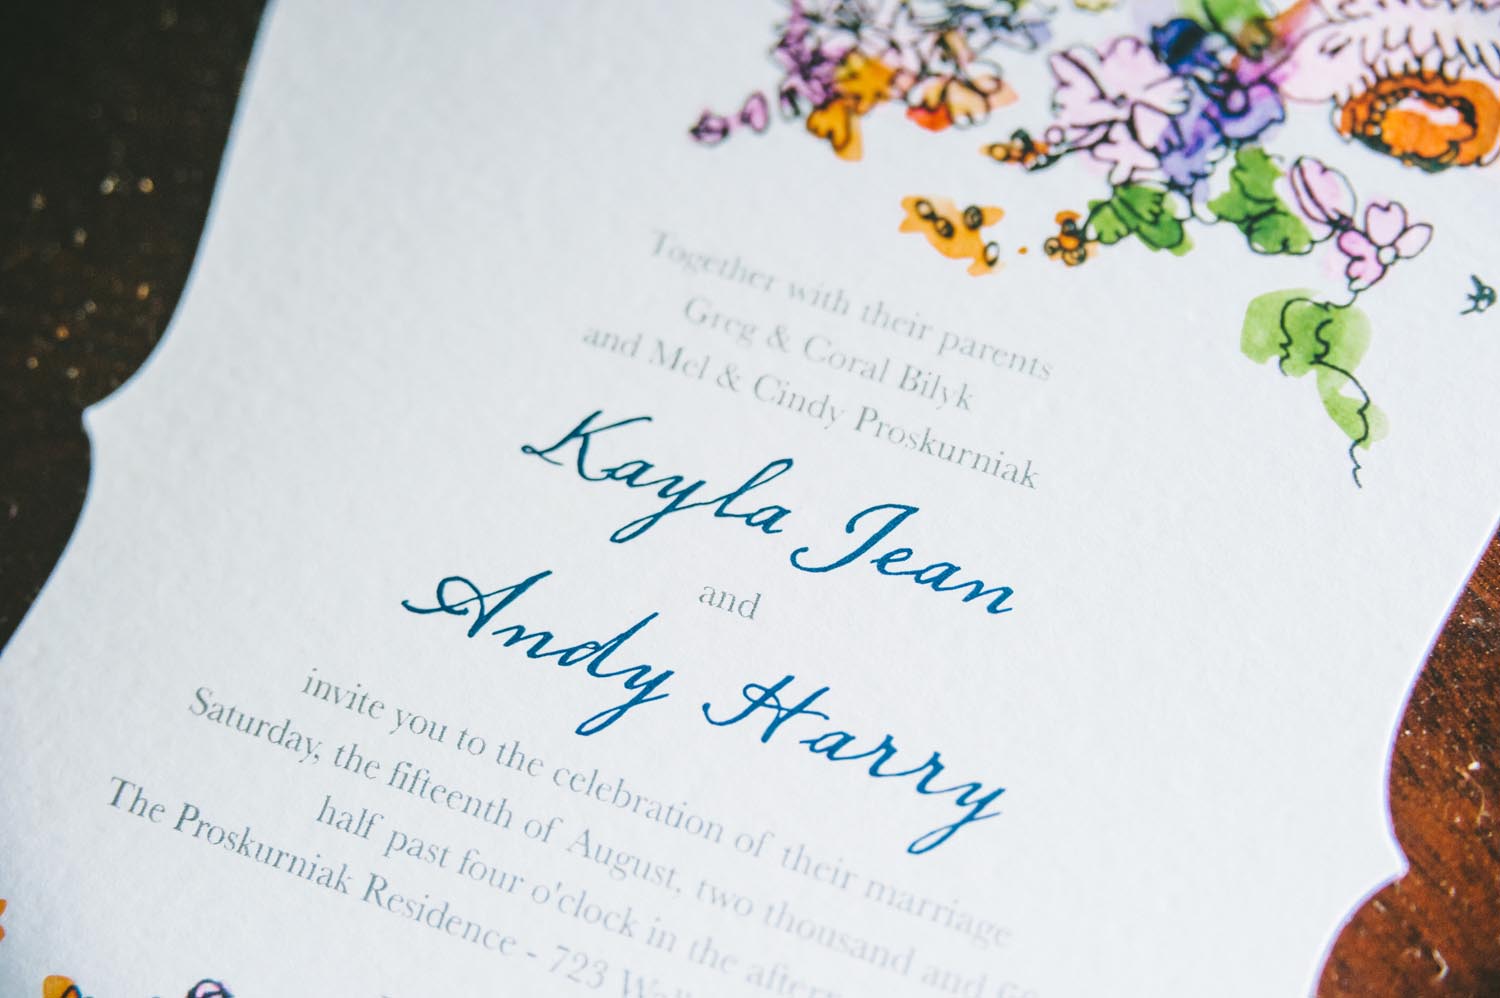 Together with their parents
Greg & Coral Bilyk
and Mel & Cindy Proskurniak
Kayla Jean
and
Andy Harry
invite you to the celebration of their marriage
Saturday, the fifteenth of August, two thousand and
half past four o'clock in the
The Proskurniak Residence - 723